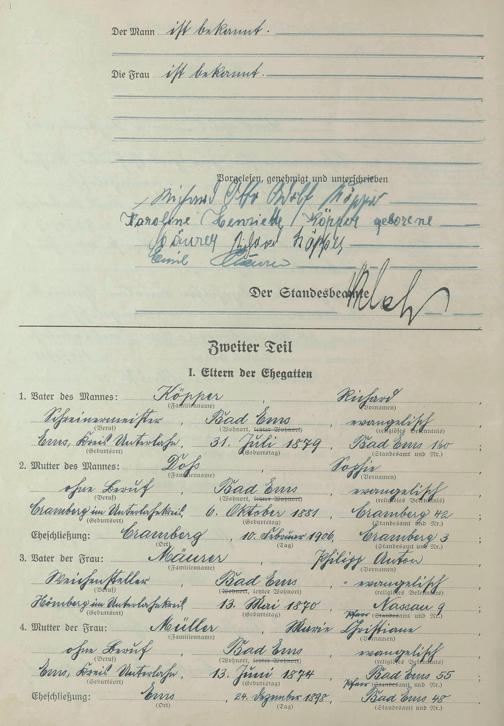 Der Mann ist bekannt.
Die Frau ist bekannt.
Vorgelesen, genehmigt und unterschrieben
Richard Otto Adolf Köpper
Karoline Henriette Köpper geborene
Mäurer Richard Köpper
Emil Mäurer
Der Standesbeamte
Zweiter Teil
I. Eltern der Ehegatten
1. Vater des Mannes: Köpper, Richard
(Familienname) (Vornamen)
Schreinermeister, Bad Ems, evangelisch
(Beruf) (Wohnort, letzter Wohnort) (religiöses Bekenntnis)
Ems, Kreis Unterlahn, 31. Juli 1879, Bad Ems 160;
(Geburtsort) (Geburtstag) (Standesamt und Nr.)
2. Mutter des Mannes: Döss, Sophie
(Familienname) (Vornamen)
ohne Beruf, Bad Ems, evangelisch
(Beruf) (Wohnort, letzter Wohnort) (religiöses Bekenntnis)
Cramberg im Unterlahnkreis, 6. Oktober 1881, Cramberg 42;
(Geburtsort) (Geburtstag) (Standesamt und Nr.)
Eheschließung: Cramberg, 10. Februar 1906, Cramberg 3;
(Ort) (Tag) (Standesamt und Nr.)
3. Vater der Frau: Mäurer, Philipp Anton
(Familienname) (Vornamen)
Weichensteller, Bad Ems, evangelisch
(Beruf) (Wohnort, letzter Wohnort) (religiöses Bekenntnis)
Hömberg im Unterlahnkreis, 13. Mai 1870, Nassau 9;
(Geburtsort) (Geburtstag) (Standesamt und Nr.)
4. Mutter der Frau: Müller, Marie Christiane
(Familienname) (Vornamen)
ohne Beruf, Bad Ems, evangelisch
(Beruf) (Wohnort, letzter Wohnort) (religiöses Bekenntnis)
Ems, Kreis Unterlahn, 13. Juni 1874, Bad Ems 55;
(Geburtsort) (Geburtstag) (Standesamt und Nr.)
Eheschließung: Ems, 24. Dezember 1898, Bad Ems 48;
(Ort) (Tag) (Standesamt und Nr.)